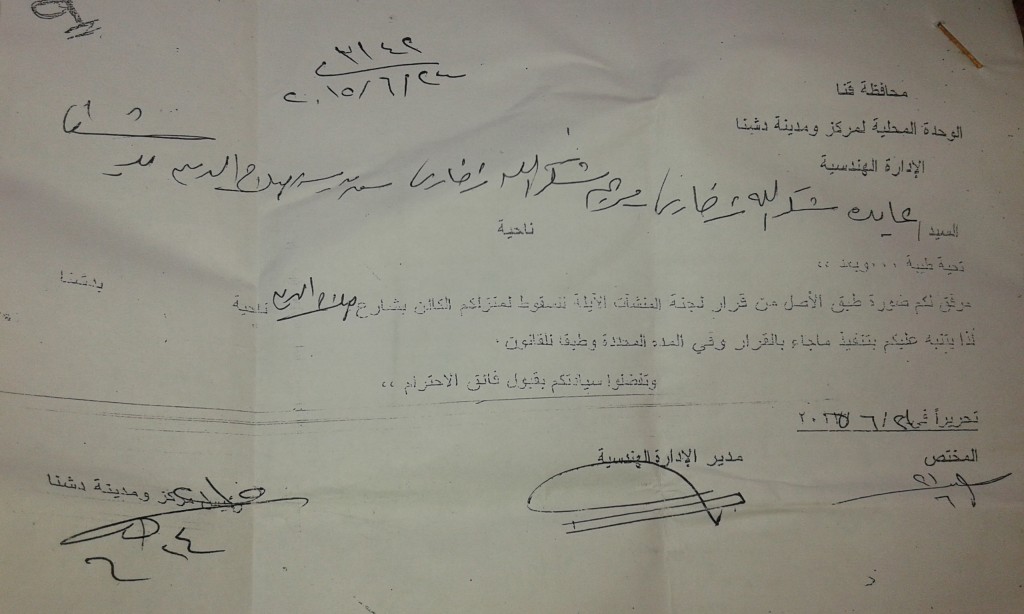 ٣١٤٢
٢٠١٥/٦/٢٤
محافظة قنا
الوحدة المحلية لمركز ومدينة دشنا
الإدارة الهندسية
السيد / عايده شكر الله مريم شكر الله صلاح الدين
ناحية
تحية طيبة ٠٠٠ وبعد ،،
مرفق لكم صورة طبق الأصل من قرار لجنة المنشآت الآيلة للسقوط لمنزلكم الكائن بشارع صلاح الدين ناحية بدشنا
لذا يتنبه عليكم بتنفيذ ماجاء بالقرار وفي المدة المحددة وطبقا للقانون ٠
وتفضلوا سيادتكم بقبول فائق الاحترام ،،
تحريراً في
المختص
مدير الإدارة الهندسية
رئيس مركز ومدينة دشنا